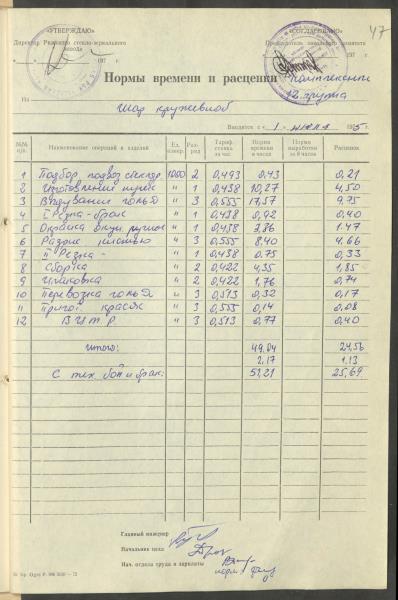 47
«УТВЕРЖДАЮ»
«СОГЛАСОВАНО»
Директор Рижского стекло-зеркального завода
Председатель заводского комитета
« » 197 г.
197 г.
Нормы времени и расценки
На Шар кружевной
12. группа
Вводятся с « 1 » июня 1975 г.
№№ п/п. Наименование операций и изделий Ед. измер. Разряд Тариф. ставка за час Норма времени в часах Норма выработки за 8 часов Расценок
1 Подбор, подвоз 1000 2 0,493 0,43 0,21
2 Изготовление " 1 0,438 10,27 4,50
3 Выдувание " 3 0,555 17,57 9,75
4 I Резка-брак " 1 0,438 0,92 0,40
5 Окраска внутр. " 1 0,438 3,36 1.47
6 Разрис кистью " 3 0,555 8,40 4,66
7 II Резка - " 1 0,438 0.75 0,33
8 Сборка " 2 0,422 4,35 1,85
9 Упаковка " 2 0,422 1,76 0,74
10 Перевозка " 3 0,513 0,32 0,17
11 Пригот. красок " 3 0,555 0,14 0,08
12 В И Т Р. " 3 0,513 0,77 0,40
Итого: 49,04 24,56
2,17 1.13
С тех. бой и брак: 51,21 25,69
Главный инженер
Начальник цеха
Нач. отдела труда и зарплаты